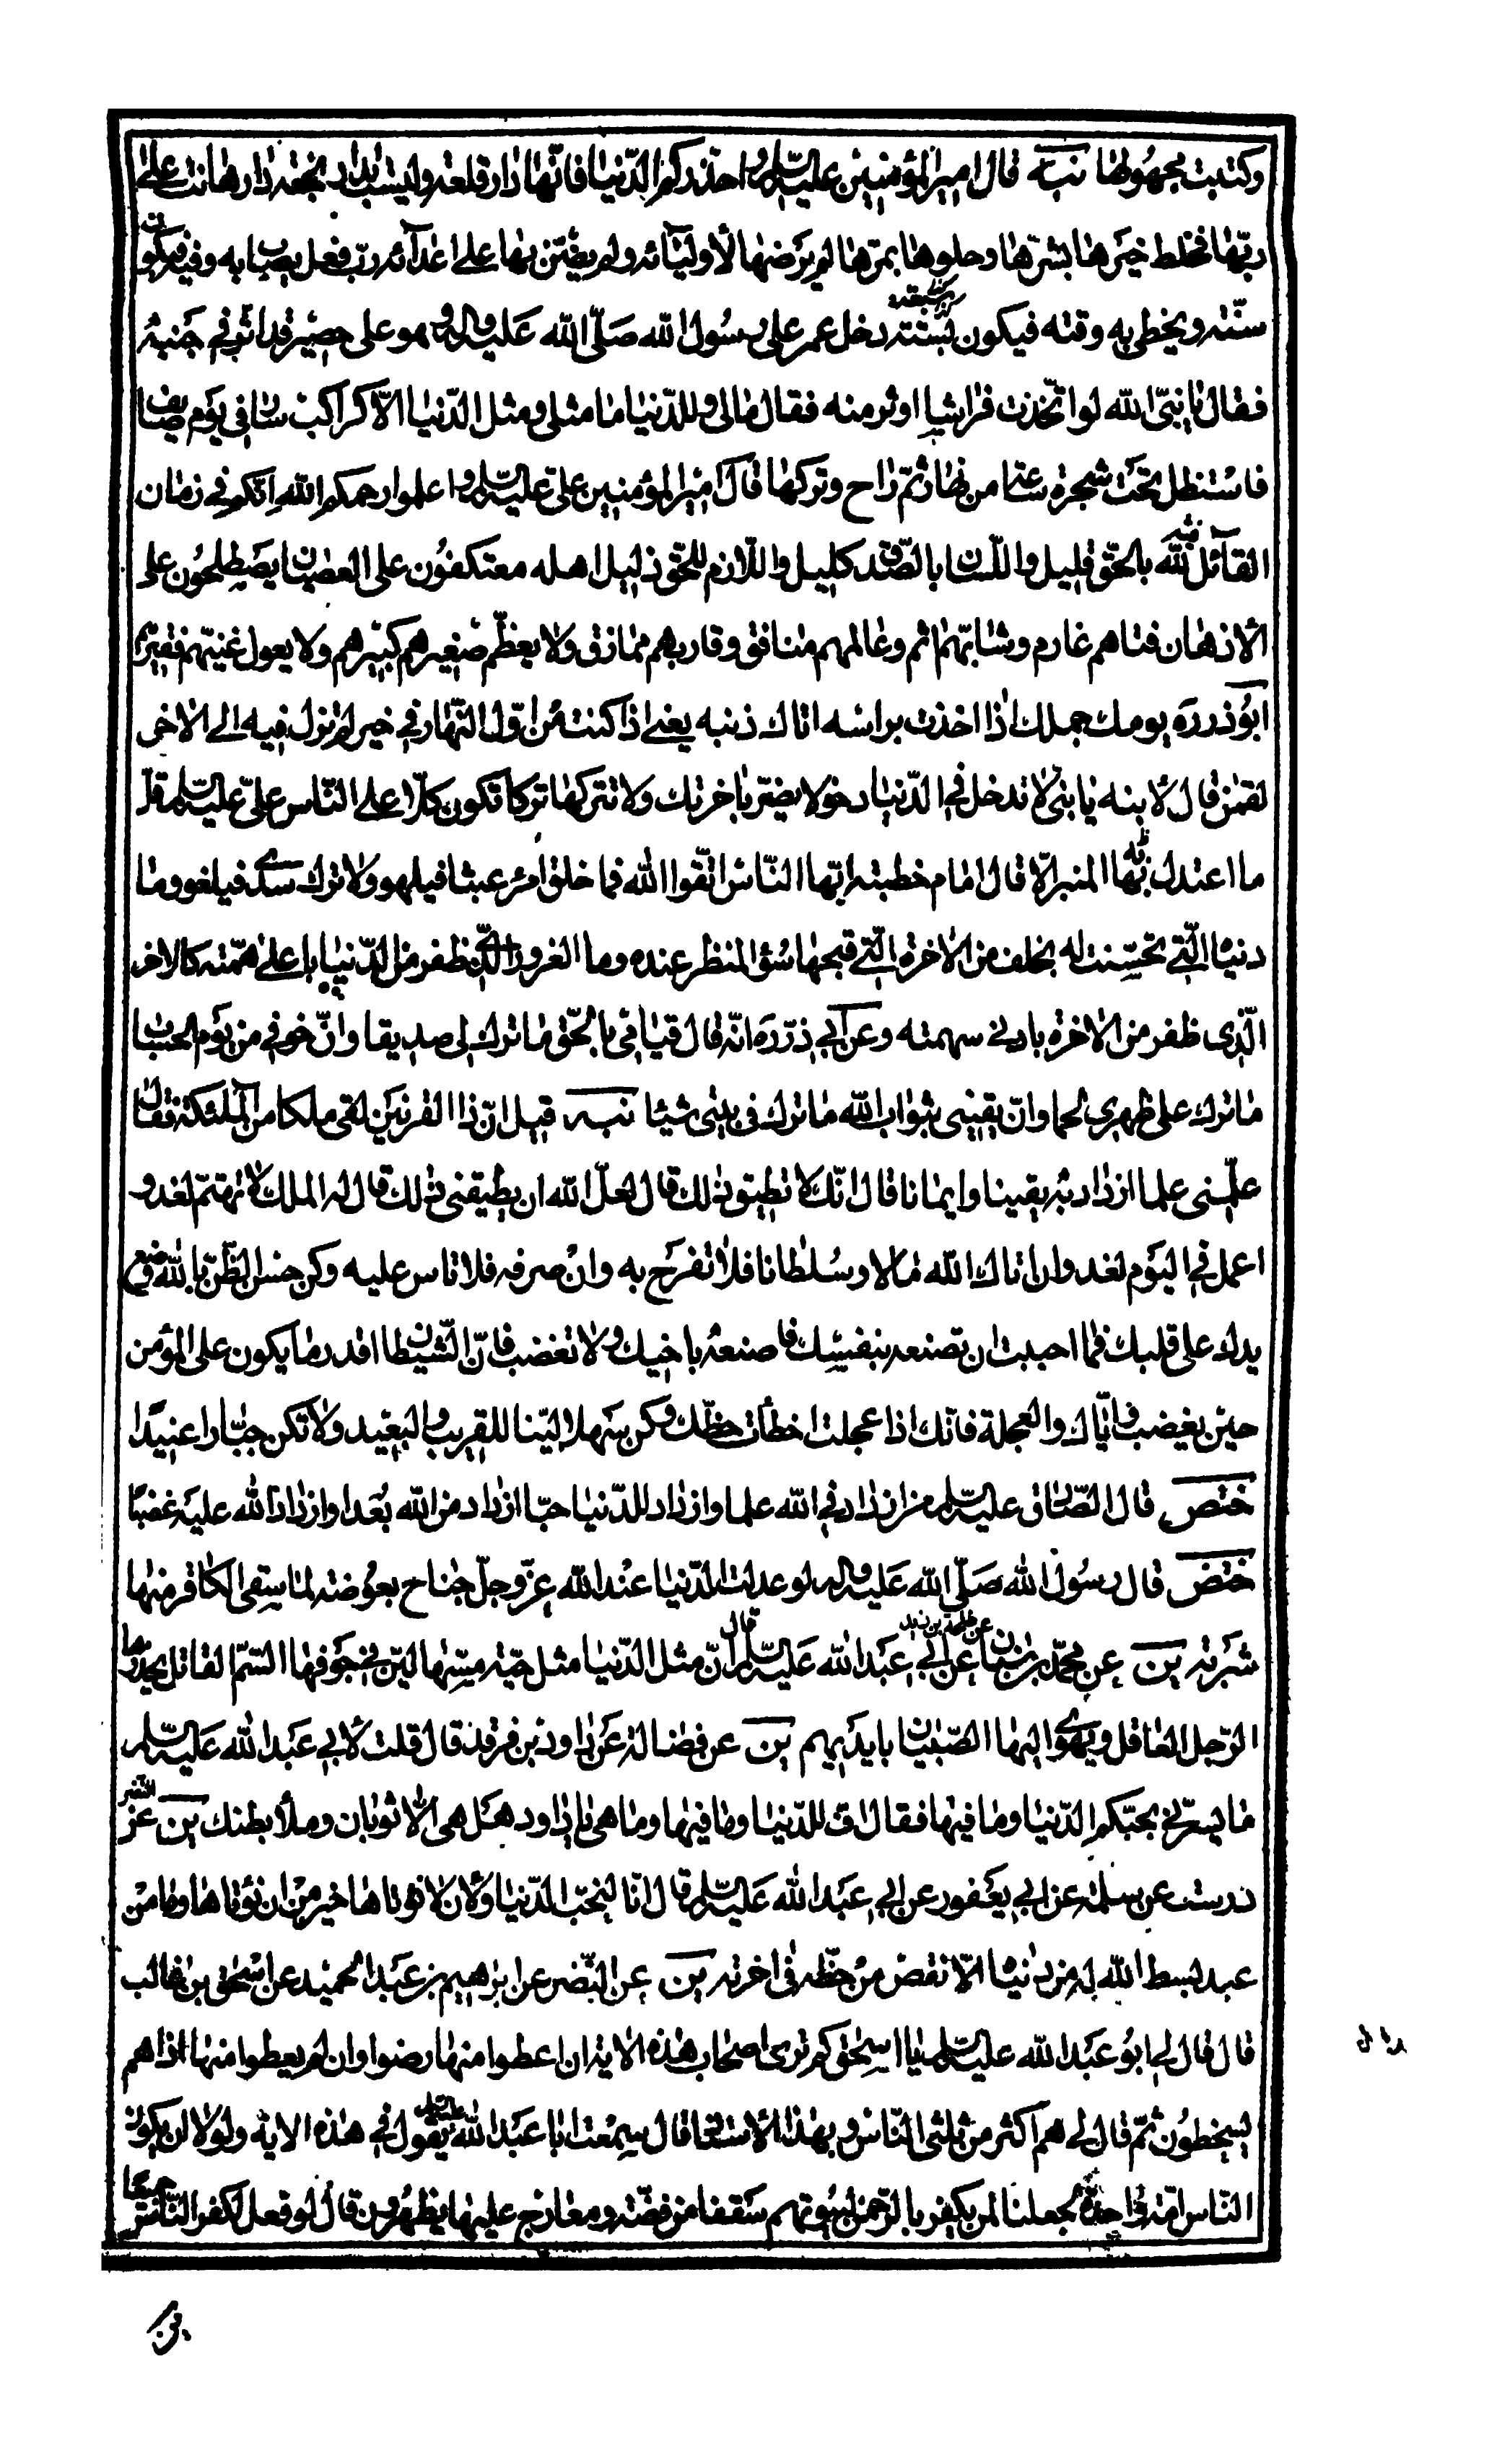 وكتبت مجهولها نبه قال امير المؤمنين عليه السلم واحذركم الدنيا فانها دار قلعة وليست بدار نجعة دار هانت على
ربها فخلط خيرها بشرها وحلوها بمرها لم يرضها لأوليائه ولم يضنن بها على اعدائه رب فعل يصاب به وقته فيكون
سنته ويخطى به وقته فيكون سبته دخل عمر على رسول الله صلى الله عليه واله وهو على حصير قد اثر في جنبه
فقال يا نبى الله لو اتخذت فراشا اوثر منه فقال مالى وللدنيا ما مثلى ومثل الدنيا الا كراكب سار في يوم صايف
فاستظل تحت شجرة ساعة من نهار ثم راح وتركها قال امير المؤمنين على عليه السلم واعلموا رحمكم الله انكم في زمان
القائل فيه بالحق قليل واللسان بالصدق كليل واللازم للحق ذليل اهله معتكفون على العصيان يصطلحون على
الأدهان فتاهم غارم وشابهم اثم وعالمهم منافق وقاربهم مماذق ولا يعظم صغيرهم كبيرهم ولا يعول غنيهم فقيرهم
ابو ذر ره يومك جملك اذا اخذت براسه اتاك ذنبه يعنى اذا كنت من اول النهار في خير لم تزل فيه الى الاخر
لقمن قال لأبنه يا بنى لا تدخل في الدنيا دخولا يضر باخرتك ولا تتركها تركا تكون كلا على الناس على عليه السلم قل
ما اعتدل به المنبر الا قال امام خطبته ايها الناس اتقوا الله فما خلق امرؤ عبثا فيلهو ولا ترك سدى فيلغو وما
دنياه التي تحسنت له بخلف من الاخرة التي قبحها سوء المنظر عنده وما المغرور الذى ظفر من الدنيا باعلى همته كالاخر
الذى ظفر من الاخرة بادنى سهمته وعن ابي ذر ره انه قال قيامى بالحق ما ترك لى صديقا وان خوفي من يوم الحساب
ما ترك على ظهرى لحما وان يقينى بثواب الله ما ترك في بيتى شيئا نبه قيل ان ذا القرنين لقى ملكا من الملئكة فقال
علمنى علما ازداد به يقينا وايمانا قال انك لا تطيق ذلك قال لعل الله ان يطيقنى ذلك قال له الملك لا تهتم لغد و
اعمل في اليوم لغد وان اتاك الله مالا وسلطانا فلا تفرح به وان صرفه فلا تاس عليه وكن حسن الظن بالله وضع
يدك على قلبك فما احببت ان تصنعه بنفسك فاصنعه باخيك ولا تغضب فان الشيطان اقدر ما يكون على المؤمن
حين يغضب واياك والعجلة فانك اذا عجلت اخطأت حظك وكن سهلا لينا للقريب والبعيد ولا تكن جبارا عنيدا
ختص قال الصادق عليه السلم من ازداد في الله علما وازداد للدنيا حبا ازداد من الله بعدا وازداد الله عليه غضبا
ختص قال رسول الله صلى الله عليه واله لو عدلت الدنيا عند الله عز وجل جناح بعوضة لما سقى الكافر منها
شربة ين عن محمد بن سنان عن طلحة بن زيد عن ابي عبد الله عليه السلم قال ان مثل الدنيا مثل حية مسها لين في جوفها السم القاتل يحذرها
الرجل العاقل ويهوى اليها الصبيان بايديهم ين عن فضالة عن داود بن فرقد قال قلت لأبي عبد الله عليه السلم
ما يسرني بحبكم الدنيا وما فيها فقال اف للدنيا وما فيها وما هى يا داود هل هى الا ثوبان وملأ بطنك ين عن النضر
درست عن سلمة عن ابي يعفور عن ابي عبد الله عليه السلم قال انا لنحب الدنيا ولأن لا نؤتاها خير من ان نؤتاها وما من
عبد بسط الله له من دنياه الا نقص من حظه في اخرته ين عن النضر عن ابرهيم بن عبد الحميد عن اسحق بن غالب
قال قال لي ابو عبد الله عليه السلم يا اسحق كم ترى اصحاب هذه الاية ان اعطوا منها رضوا وان لم يعطوا منها اذا هم
يسخطون ثم قال لي هم اكثر من ثلثى الناس وبهذا الأسناد قال سمعت ابا عبد الله عليه السلم يقول في هذه الاية ولولا ان يكون
الناس امة واحدة لجعلنا لمن يكفر بالرحمن لبيوتهم سقفا من فضة ومعارج عليها يظهرون قال لو فعل لكفر الناس جميعا